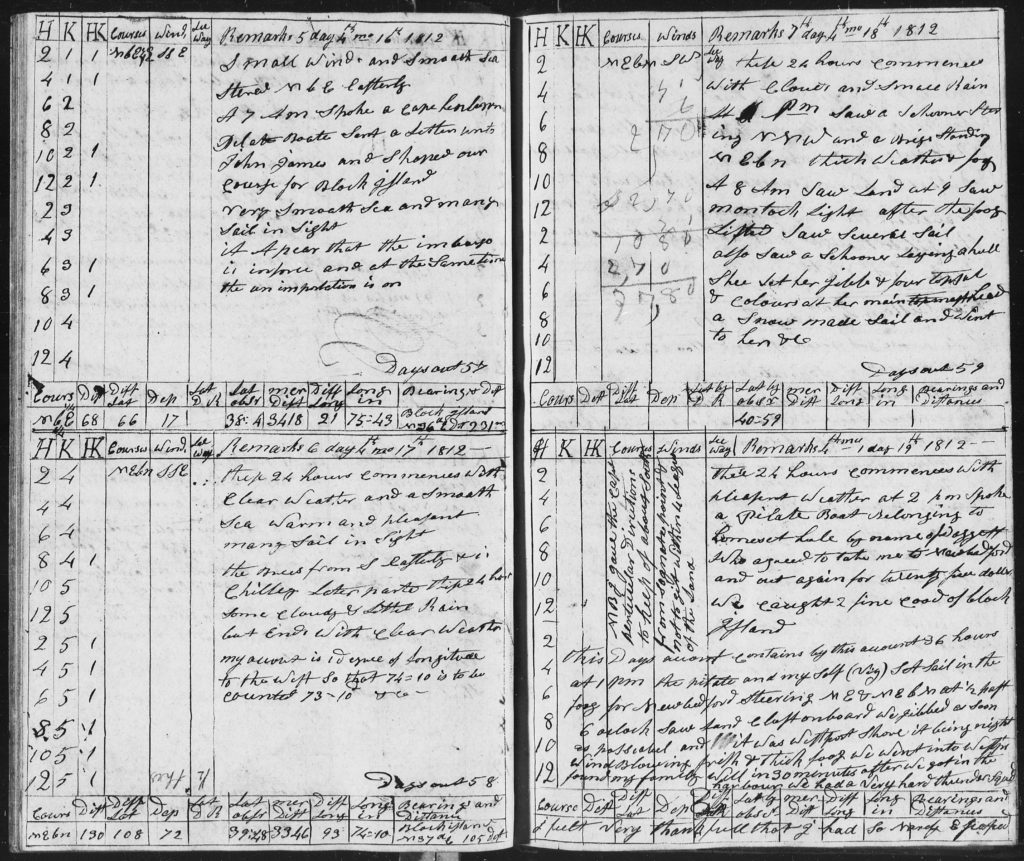 H K HK Courses Wind Lee Way Remarks 5 day 4th mo 16th 1812
2 1 1 NbE½E SSE Small Winds and Smooth Sea
4 1 1 Stered NbE Easterly
6 2 At 7 Am Spoke a Cape henlopen
8 2 Pilate Boate Sent a Letter unto
10 2 1 John James and Shaped our
12 2 1 Course for Block Island
2 3 Very Smooth Sea and many
4 3 Sail in Sight
6 3 1 it Apear that the imbargo
is inforce and at the Sametime
8 3 1 the an importation is on
10 4
12 4 Days out 57
Cours Dist Diff Lat Dep Lat D R Lat obsr mer Diff Diff Long Long in Bearings & Dist
NbE 68 66 17 38=4 3418 21 75=43 Block Island N36 d 231 m
H K HK Courses Wind Lee Way Remarks 6 day 4th mo 17th 1812
2 4 NEbN SSE these 24 hours commences With
4 4 Clear Weather and a Smooth
6 4 Sea Warm and pleasent
many Sail in Sight
8 4 1 the Brees from S Easterly & is
10 5 Chilley Later parte these 24 hour
12 5 Some Cloudy & Little Rain
2 5 1 but Ends With Clear Weather
4 5 1 my acount is 1 degree of Longitude
to the West So that 74=10 is to be
6 5 1 Counted 73=10 & c
8 5 1
10 5 1
12 5 1 Days out 58
Cours Dist Diff Lat Dep Lat D R Lat obsr mer Diff Diff Long Long in Bearings and Distance
NEbN 130 108 72 39=28 3346 93 74=10 Block island N37 d 105 Dist
H K HK Courses Winds Lee Way Remarks 7th day 4th mo 18th 1812
2 NEbN SW these 24 hours commences
4 With Clouds and Small Rain
6 At Pm Saw a Schooner Ster
ing NNW and a Brig Standing
8 NEbN thick Weather & fog
10 At 8 Am Saw Land at 9 Saw
12 montock Light after the fog
2 Lifted Saw Severel Sail
also Saw a Schooner Laying ahull
4 Shee Set her gibbs & four topsal
6 & Colours at her main head
8 a Snow made Sail and Went
10 to her & c
12 Days out 59
Cours Dist Diff Lat Dep Lat by D R Lat by obsr mer Diff Diff Long Long in Bearings and Distance
40=59
H K HK Courses Winds Lee Way Remarks 4th mo 1 day 19th 1812
NB I gave the Cape
pendicular directions
to keep of about South
from Sogmate point by
not to git within 10 Leagues
of the Land
2 these 24 hours commences With
4 pleasent Weather at 2 pm Spoke
a Pilate Boat Belonging to
6 homeset hole by name of Daggett
8 Who agreed to take me to Newbedford
10 and out again for twenty five dollers
12 We Caught 2 fine Cood of block
Island
2 this Days acount Contains by this acount 36 hours
4 at 1 pm the pilate and my Self Set Sail in the
6 fog for Newbedford Steering NE & NEbN at ½ past
8 6 oclock Saw Land Close onboard We gibbed as Soon
10 as possabel and it was Westport Shore it being night
Wind Blowing fresh & thick foog We Went into Westport
12 found my family Well in 30 menuites after We got in the
harbour we had a Very hard thunder Squal
Course Dist Diff Lat Dep Lat by obsr mer Diff Diff Long Long in Bearings and Distance
I felt Very thankfull that I had So Narrow Escaped